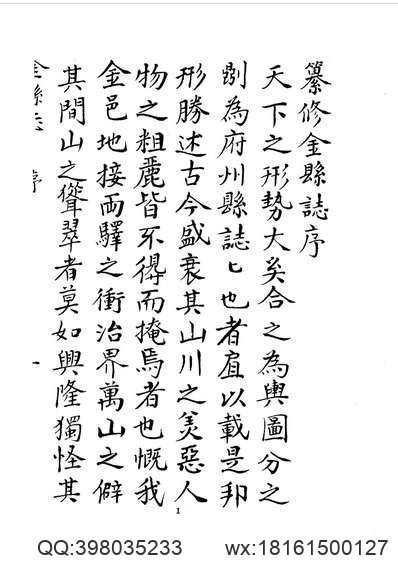 纂修金縣誌序
天下之形勢大矣合之為輿圖分之
則為府州縣誌匕也者直以載是邦
形勝述古今盛衰其山川之美惡人
物之粗麗皆不得而掩焉者也慨我
金邑地接兩驛之衝治界萬山之僻
其間山之聳翠者莫如興隆獨怪其
金縣志 序 一
1
QQ:398035233 wx:18161500127